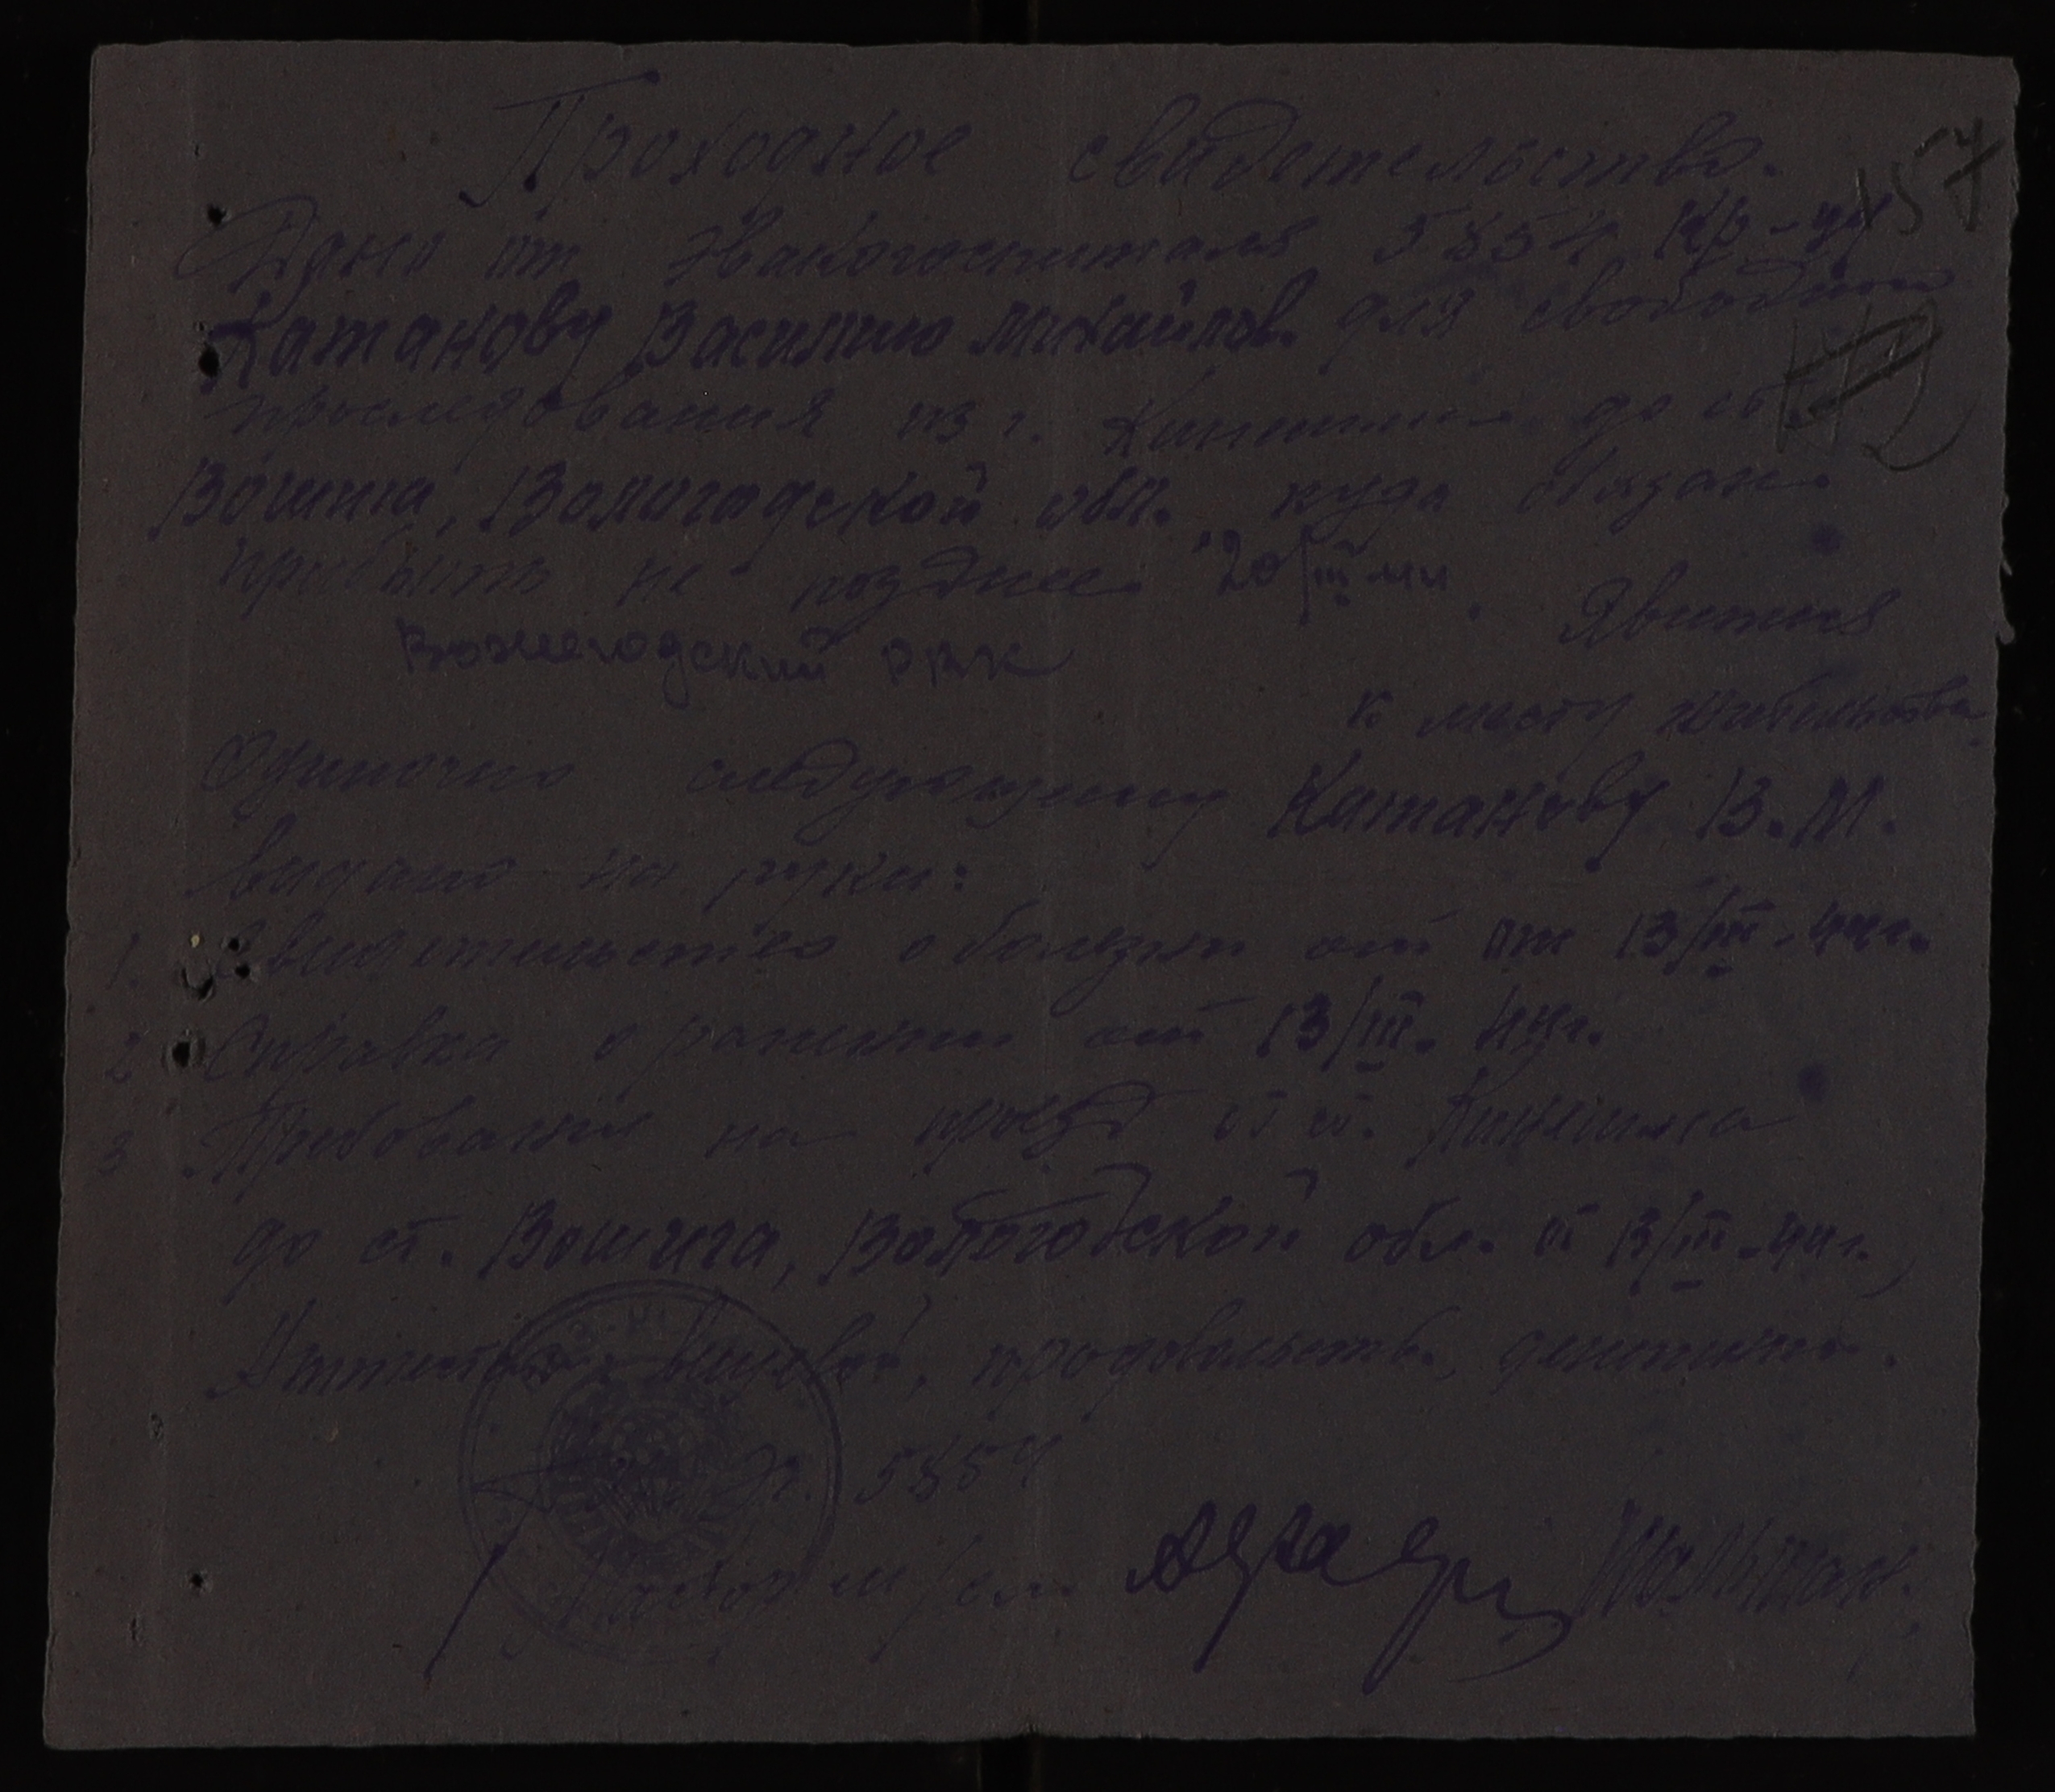 Проходное свидетельство.
157
Дано от эвакогоспиталя 5854 кр-цу
Катанову Василию Михайлов. для свободного
проследования из г. Кинешма до ст.
Вошига, Вологодской обл. куда обязан
прибыть не позднее "20/III 44 . Явиться
Вожегодский РВК
к месту жительства
Одиночно следующему Катанову В. М.
выдано на руки:
1. Свидетельство о болезни от 13/III. 44 г.
2 Справка о ранении от 13/III. 44 г.
3 Требования на проезд от ст. Кинешма
до ст. Вошига, Вологодской обл. от 13/III. 44 г.
Аттестат вещевой, продовольств., денежный.
5854